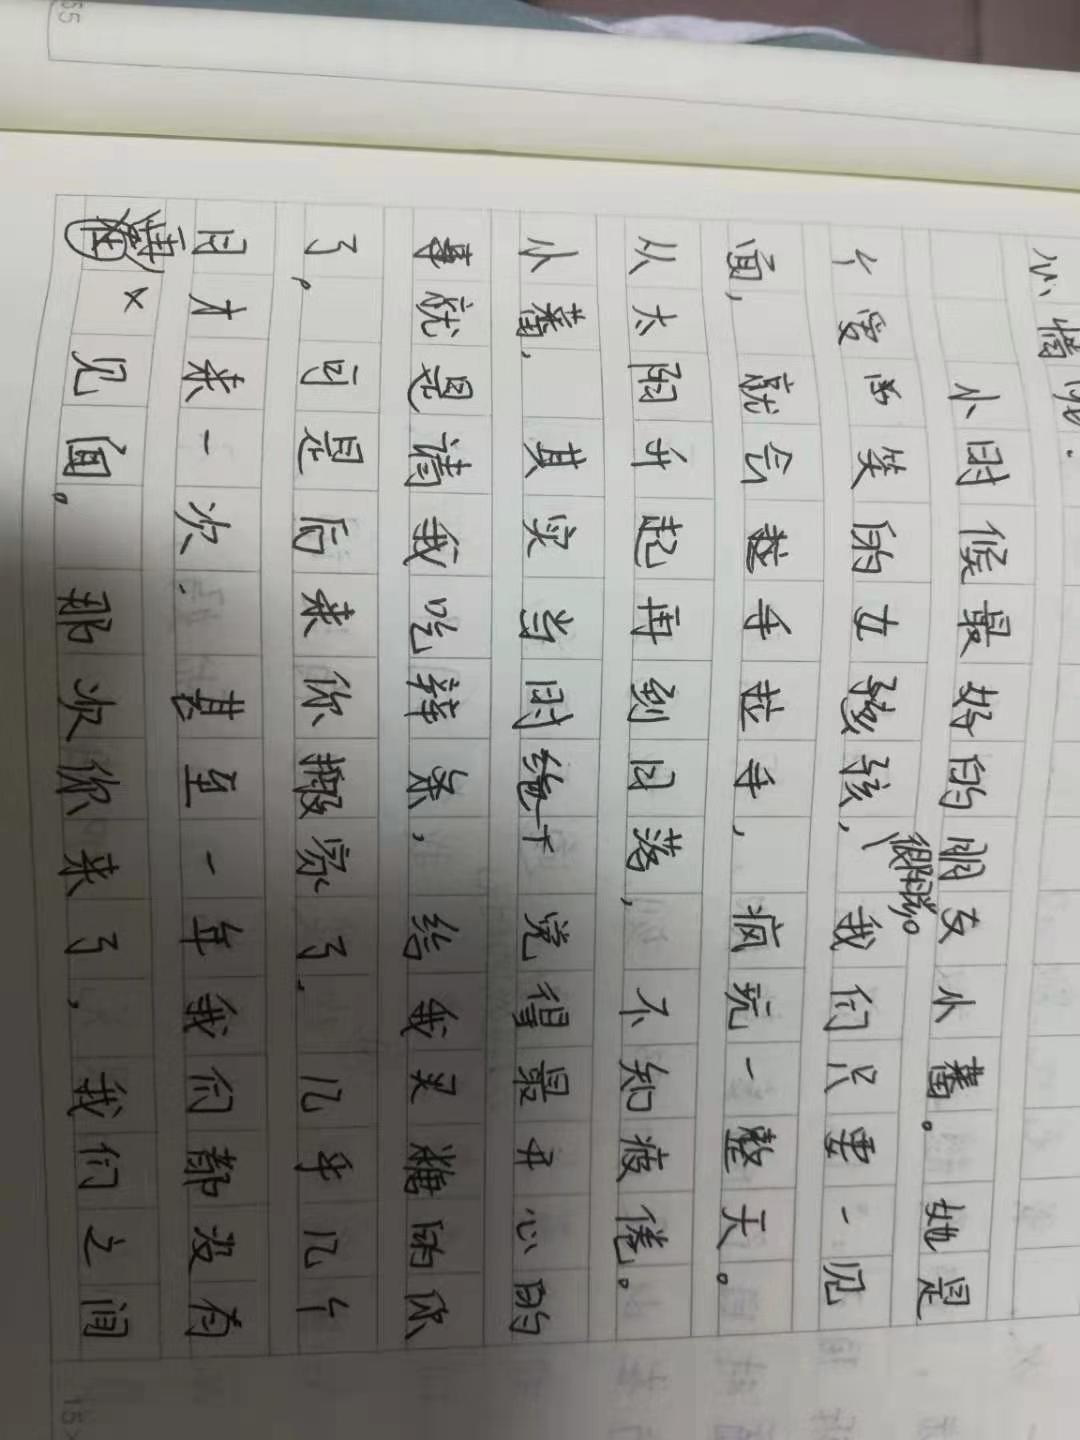 心情
小时候最好的朋友小蕾。她是
个爱 笑的女孩孩，我们只要一见
面，就会 手拉手，疯玩一整天。
从太阳升起再到日落，不知疲倦。
小蕾，其实当时 觉得最开心的
事就是请我吃辣条，给我买糖的你
了。可是后来你搬家了，几乎几个
月才来一次. 甚至一年我们都没有
见面。那次你来了，我们之间